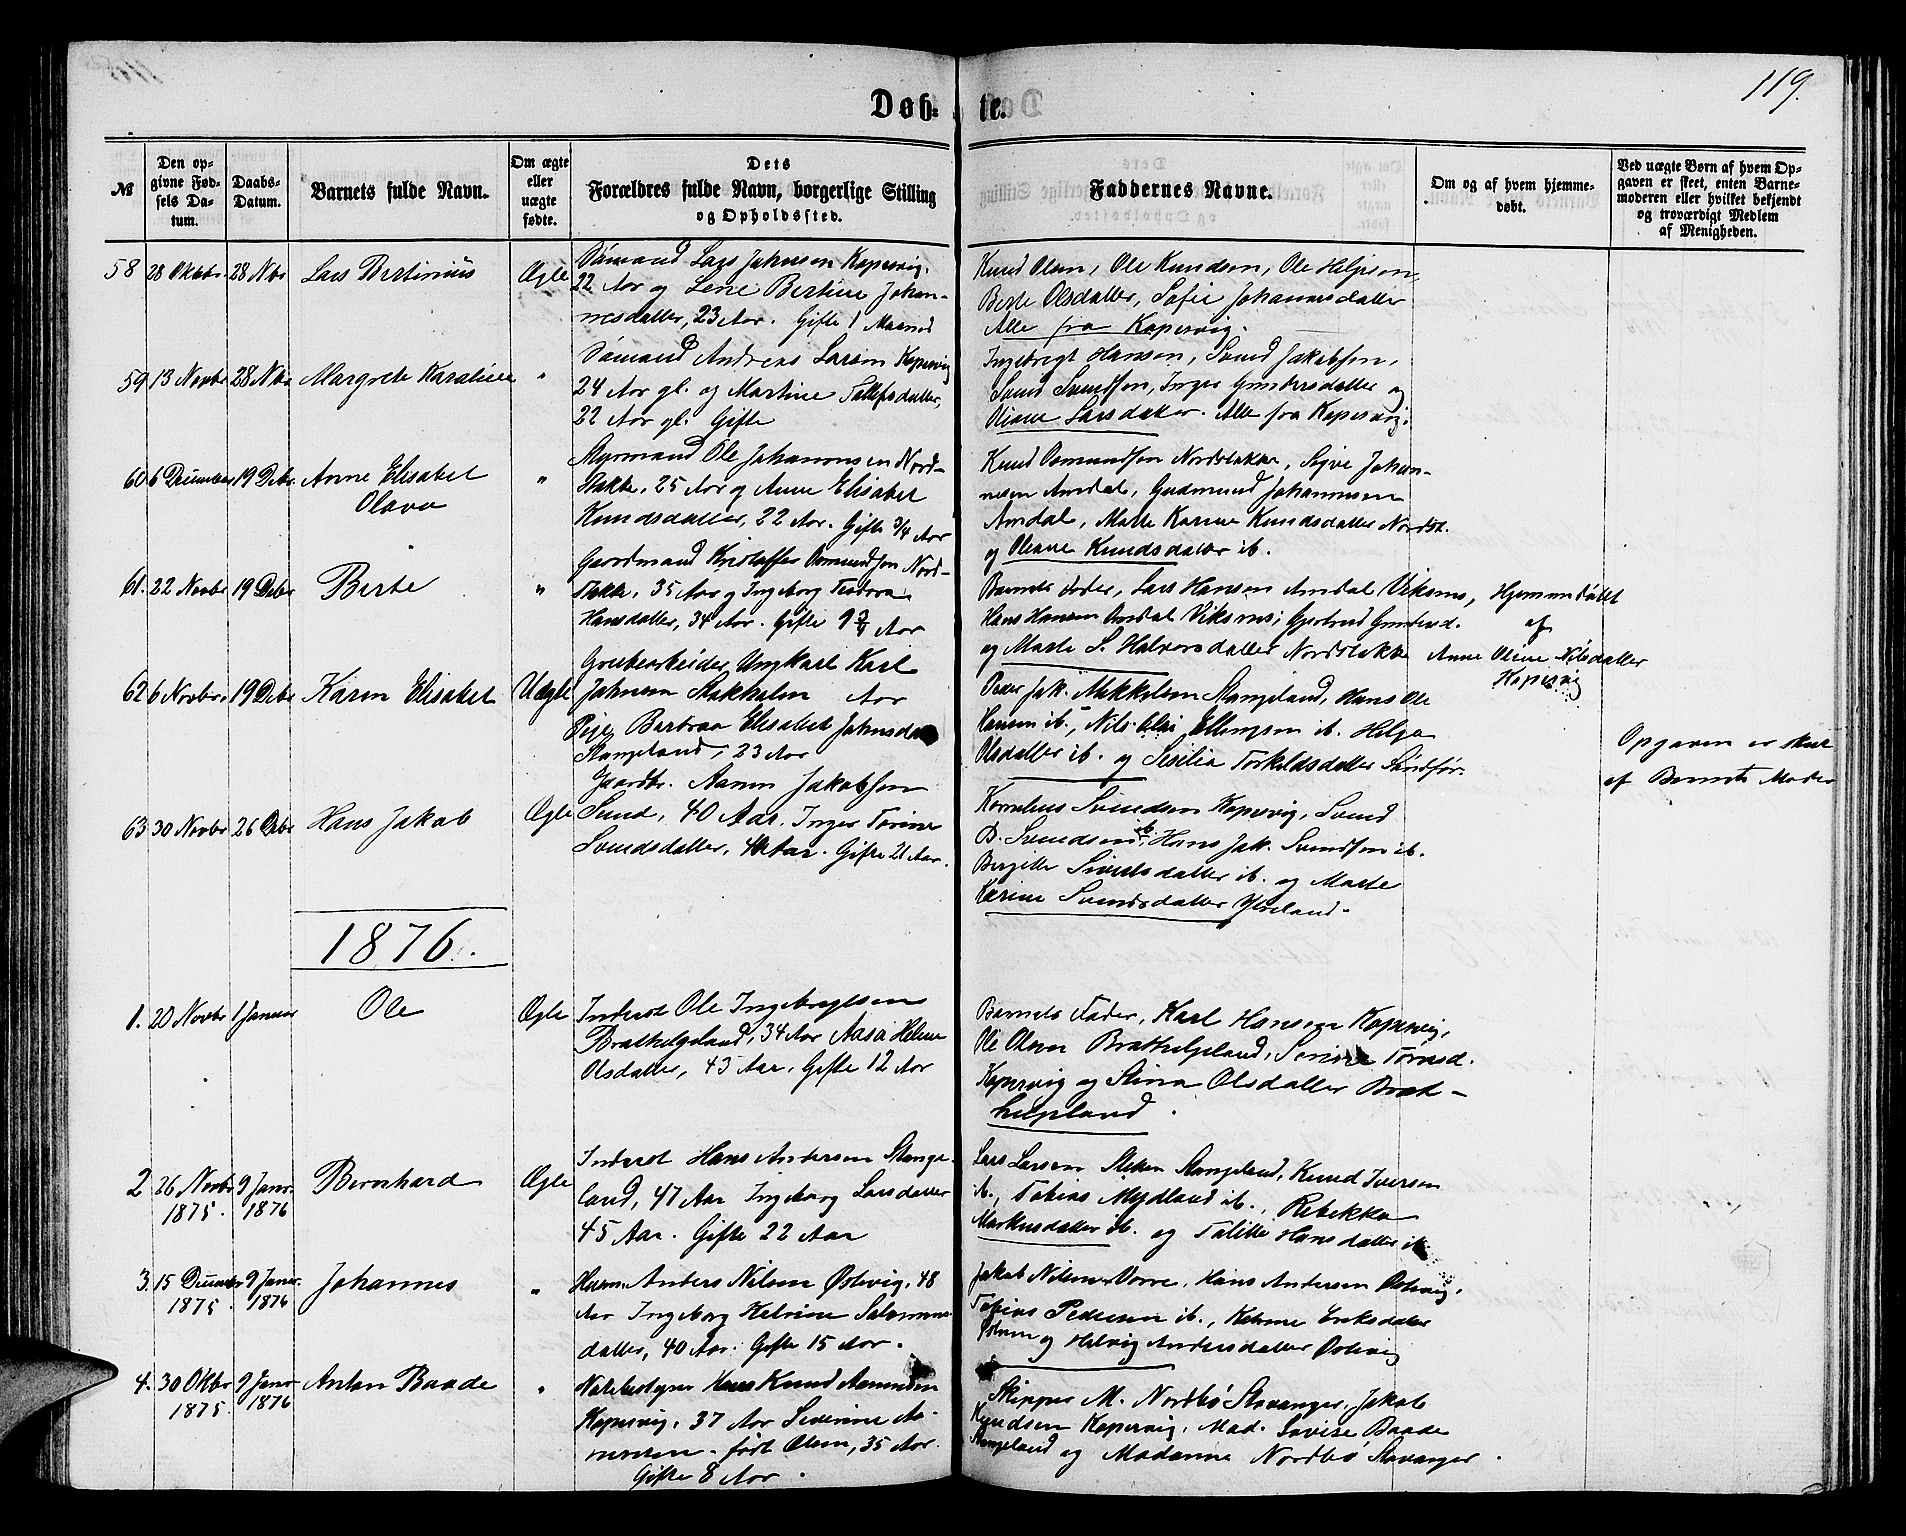 119.
Døb- te.
№
Den op-
givne Fød-
sels Da-
tum.
Daabs-
Datum.
Barnets fulde Navn.
Om ægte
eller
uægte
fødte.
Dets
Forældres fulde Navn, borgerlige Stilling
og Opholdssted.
Faddernes Navne.
Om og af hvem hjemme-
døbt.
Ved uægte Børn af hvem Op-
gaven er skeet, enten Barne-
moderen eller hvilket bekjendt
og troværdigt Medlem
af Menigheden.
58 28 Oktobr. 28 Nbr Lars Bertinius Ægte
Sømand Lars Johnsen Kopervig,
22 Aar og Lene Bertine Johan-
nesdatter, 23 Aar. Gifte 1 Maaned
Knud Olsen, Ole Knudsen, Ole Helgesen,
Berte Olsdatter, Sofie Johannesdatter
Alle fra Kopervig.
59 13 Novbr 28 Nbr Margrete Karoline "
Sømand Andreas Larsen Kopervig
24 Aar gl. og Martine Tollefsdatter,
22 Aar gl. Gifte
Ingebrigt Hansen, Svend Jakobsen,
Svend Svendsen, Inger Gundersdatter og
Oliane Larsdatter. Alle fra Kopervig.
60 6 December 19 Debr Anne Elisabet
Olava "
Styrmand Ole Johannesen Nord-
stokke, 25 Aar og Anne Elisabet
Knudsdatter, 22 Aar. Gifte 3/4 Aar
Knud Osmundsen Nordstokke, Johan-
nesen Amdal, Gudmund Johannesen
Amdal, Malle Karine Knudsdatter Nordst.
og Oliane Knudsdatter ib.
61. 22 Novbr 19 Debr Berte "
Gaardmand Kristoffer Osmundsen Nord-
stokke, 35 Aar og Ingeborg Teodora
Hansdatter, 34 Aar. Gifte 9 Aar
Barnets Fader, Lars Hansen Amdal Viksnes,
Hans Hansen Amdal Viksnes, Gjertrud Gundersd.
og Marte S. Halvorsdatter Nordstokke
Hjemmedøbt
af
Anne Oline Nilsdatter
Kopervig
62 6 Novbr. 19 Debr Karen Elisabet Uægte
Grubearbeider, Ungkarl Karl
Johnsen Stokholm Aar
Pige Barbraa Elisabet Johnsdatter
Stangeland, 23 Aar
Peder Jak. Mikkelsen Stangeland, Hans Ole
Hansen ib., Nils Elias Ellingsen ib. Helga
Olsdatter ib. og Sisilia Torkildsdatter
Opgaven er skeet
af Barnets Moder
63 30 Novbr 26 Debr Hans Jakob Ægte
Gaardbr. Aamun Jakobsen
Sund, 40 Aar. Inger Torine
Svendsdatter, Aar. Gifte 21 Aar.
Kornelius Svendsen Kopervig, Svend
B. Svendsen ib. Hans Jak. Svendsen ib.
Bergitte Sivertsdatter ib. og Marte
Karine Svendsdatter
1876.
1. 20 Novbr 1 Januar Ole Ægte
Inderst Ole Ingebrigtsen
Brathelgeland, 34 Aar Aasa Helene
Olsdatter, 43 Aar, Gifte 12 Aar
Barnets Fader, Karl Hansen Kopervig,
Ole Olsen Brathelgeland, Serine Toresd.
Kopervig og Stina Olsdatter Brat-
helgeland.
2 26 Novbr 9 Janr. Bernhard Ægte
1875. 1876
Inderst Hans Andersen Stange-
land, 47 Aar Ingeborg Larsdatter
45 Aar. Gifte 22 Aar
Lars Larsen Stangeland, Knud Iversen
ib., Tobias Mydland ib., Rebekka
Markusdatter ib. og Talette Hansdatter ib.
3. 15 December 9 Janr. Johannes "
1875. 1876
Anders Nilsen Østevig, 48
Aar Ingeborg Helvine Salomons-
datter, 40 Aar. Gifte 15 Aar.
Jakob Nilsen Vorre, Hans Andersen Østevig,
Tobias Pedersen ib., Eriksdatter
og Helvig Andersdatter Østevig
4. 30 Oktbr 9 Janr Anton Baade "
1875. 1876
Hans Knud Aamundsen
Kopervig, 37 Aar Severine Aa-
mundsen født Olsen, 35 Aar.
Gifte 8 Aar.
Skipper M. Nordbø Stavanger, Jakob
Knudsen Kopervig, Mad. Lovise Baade
Stangeland og Madamme Nordbø Stavanger.